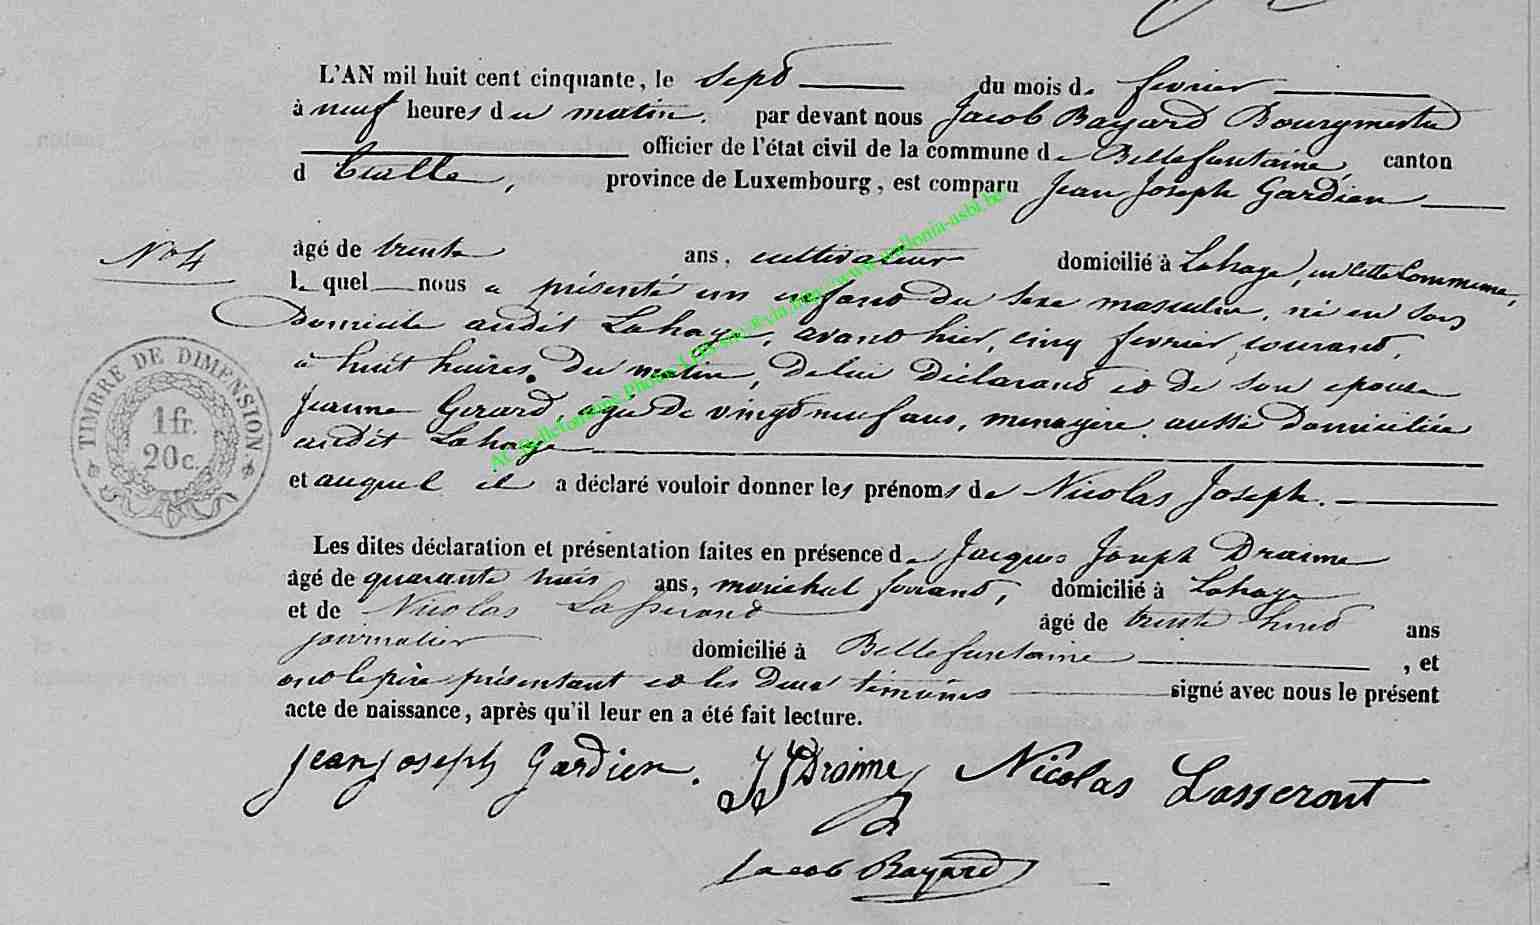 L'AN mil huit cent cinquante, le sept du mois de fevrier
à neuf heures du matin. par devant nous Jacob Bayard Bourgmestre
officier de l'état civil de la commune de Bellefontaine, canton
d'Etalle, province de Luxembourg, est comparu Jean Joseph Gardien
No 4
âgé de trente ans, cultivateur domicilié à Lahage, en cette Commune,
le quel nous a présenté un enfant du sexe masculin, né en son
Domicile audit Lahage, avant hier, cinq fevrier courant,
à huit heures du matin, de lui Déclarant et de son epouse
Jeanne Gerard, agée de vingt neuf ans, menagère aussi Domiciliée
audit Lahage
et auquel il a déclaré vouloir donner les prénoms de Nicolas Joseph.
TIMBRE DE DIMENSION.
1 fr.
20 c.
Les dites déclaration et présentation faites en présence de Jacques Joseph Draime
âgé de quarante ans, maréchal ferrant, domicilié à Lahage
et de Nicolas Lasserond âgé de trente huit ans
journalier domicilié à Bellefontaine, et
ont le père présentant et les Deux témoins signé avec nous le présent
acte de naissance, après qu'il leur en a été fait lecture.
Jean joseph Gardien. JJ Draime Nicolas Lasseront
Jacob Bayard